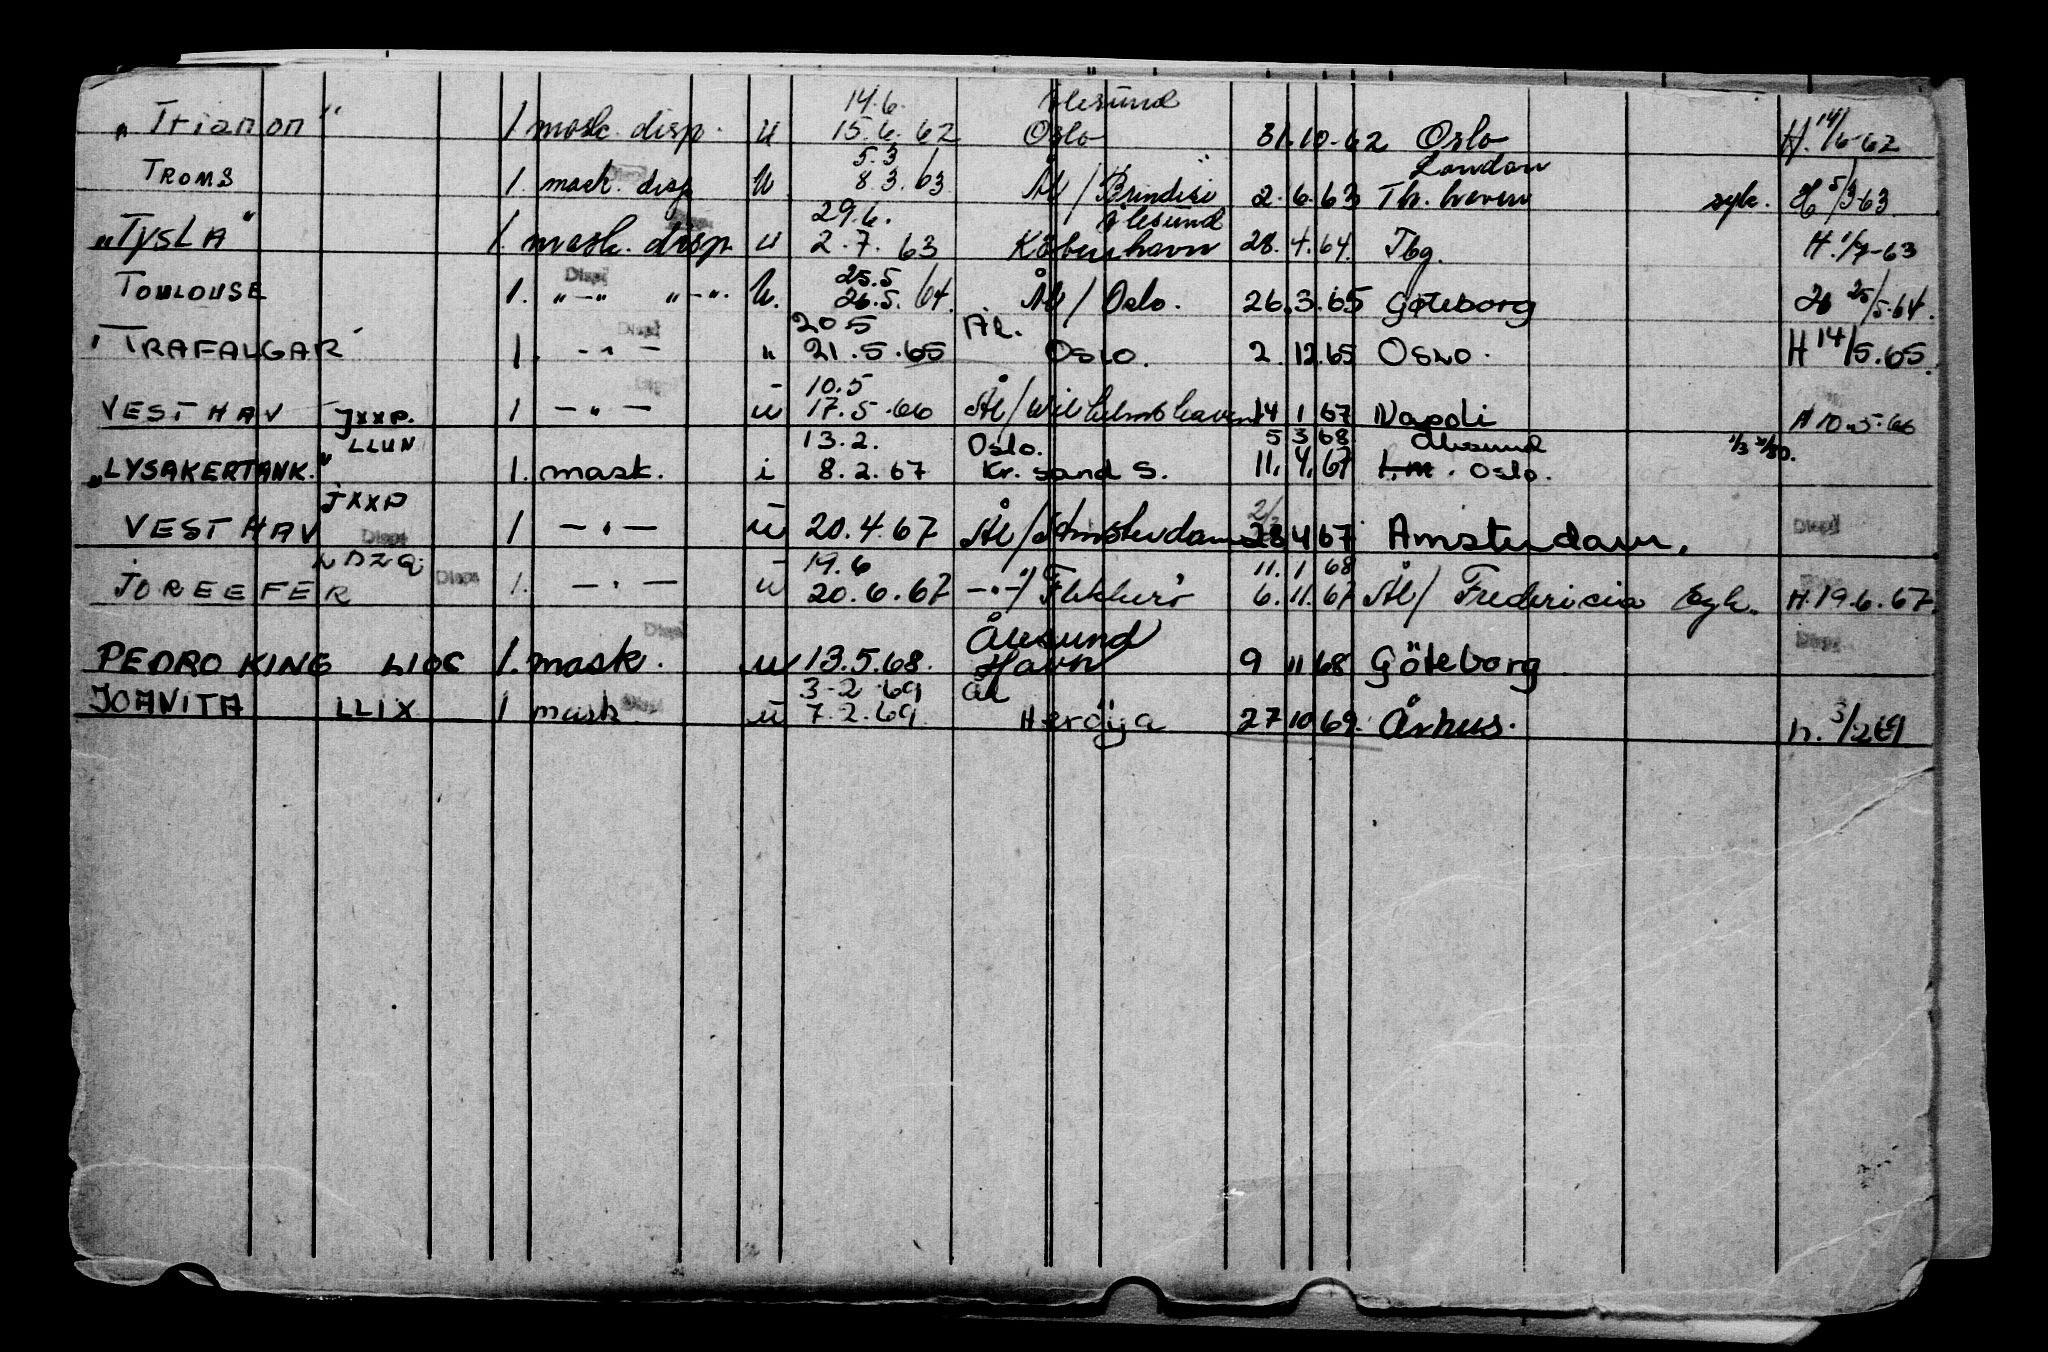 14.6. Ålesund
„Trianon“ 1 mask. disp. u 15.6.62 Oslo 31.10.62 Oslo H. 14/6-62
5.3 London
TROMS 1. mask. disp u 8.3.63 Ål/Brindisi 2.6.63 Th. havn syk. H 5/3-63
29.6. Ålesund
„TYSLA“ 1. mask. disp. u 2.7.63 København 28.4.64. Tbg. H. 1/7-63
Disp 25.5
TOULOUSE 1. „-„ „-„. u. 26.5.64. Ål/Oslo. 26.3.65 Göteborg 26 25/5-64.
Disp 20.5 ÅL.
"TRAFALGAR" 1. -„- „ 21.5.65 OSLO. 2.12.65 OSLO. H 14/5.65.
10.5
VESTHAV JXXP. 1 -„- u 17.5.66 Ål/Wilhelmshaven 14 1 67 Napoli H 10.5.66
LLUN 13.2. Oslo. 5 3 68 Ålesund
„LYSAKERTANK.“ 1. mask. i 8.2.67 Kr. sand S. 11.4.67 Oslo.
JXXP
VESTHAV Disp 1 -„- u 20.4.67 Ål/Amsterdam 28 4 67 Amsterdam. Disp
LDZQ 19.6 11. 1 68
JOREEFER Disp 1. -„- u 20.6.67 -„-/Flekkerö 6.11.67 Ål/Fredericia syk. H.19.6.67.
Disp Ålesund Disp
PEDRO KING LIOC 1. mask. u 13.5.68. Havn 9 11 68 Göteborg
3-2.69 ål
JOANITA LLIX 1 mask Disp u 7.2.69. Heröya 27 10 69. Århus. h. 3/2 69